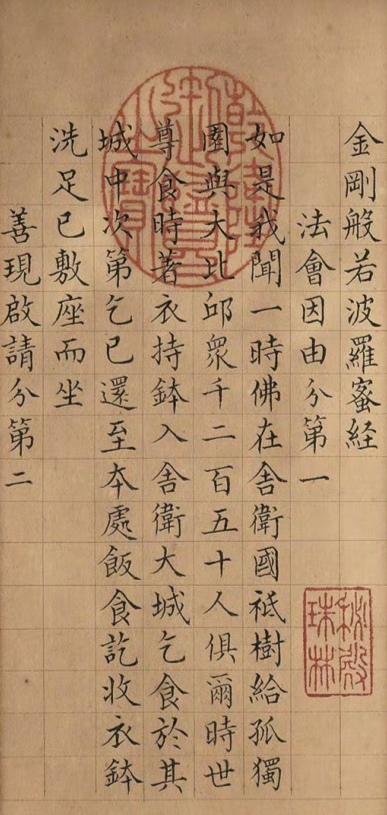 金剛般若波羅蜜経
法會因由分第一
如是我聞一時佛在舍衛國祗樹給孤獨
園與大比邱眾千二百五十人俱爾時世
尊食時著衣持鉢入舍衛大城乞食於其
城中次第乞已還至夲處飯食訖收衣鉢
洗足已敷座而坐
善現啟請分第二
乾隆御覽之寶
秘殿珠林